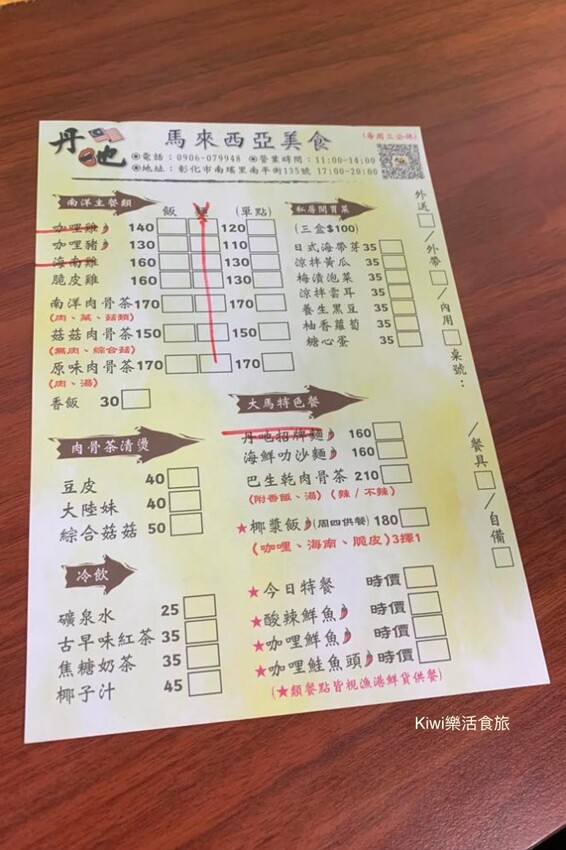 丹吔
馬來西亞美食
(每周三公休)
◉電話：0906-079948 ◉營業時間：11:00-14:00
◉地址：彰化市南瑤里南平街135號 17:00-20:00
南洋主餐類 飯 (單點)
咖哩雞 140 120
咖哩豬 130 110
海南雞 160 130
脆皮雞 160 130
南洋肉骨茶 170 170
(肉、菜、菇類)
菇菇肉骨茶 150 150
(無肉、綜合菇)
原味肉骨茶 170 170
(肉、湯)
香飯 30
私房開胃菜
(三盒$100)
日式海帶芽 35
涼拌黃瓜 35
梅漬泡菜 35
涼拌雲耳 35
養生黑豆 35
柚香蘿蔔 35
糖心蛋 35
外送
／外帶
／內用
桌號：
／餐具
／自備
肉骨茶清燙
豆皮 40
大陸妹 40
綜合菇菇 50
大馬特色餐
丹吔招牌麵 160
海鮮叻沙麵 160
巴生乾肉骨茶 210
(附香飯、湯) (辣／不辣)
★椰漿飯 (周四供餐) 180
(咖哩、海南、脆皮)3擇1
冷飲
礦泉水 25
古早味紅茶 35
焦糖奶茶 35
椰子汁 45
★今日特餐 時價
★酸辣鮮魚 時價
★咖哩鮮魚 時價
★咖哩鮭魚頭 時價
(★類餐點皆視漁港鮮貨供餐)
Kiwi樂活食旅